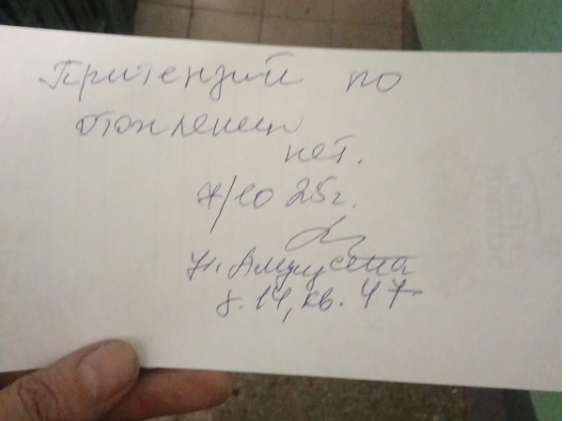 Притензий по
отоплению
нет.
7/10 25г.
ул. Амундсена
д. 14, кв. 47